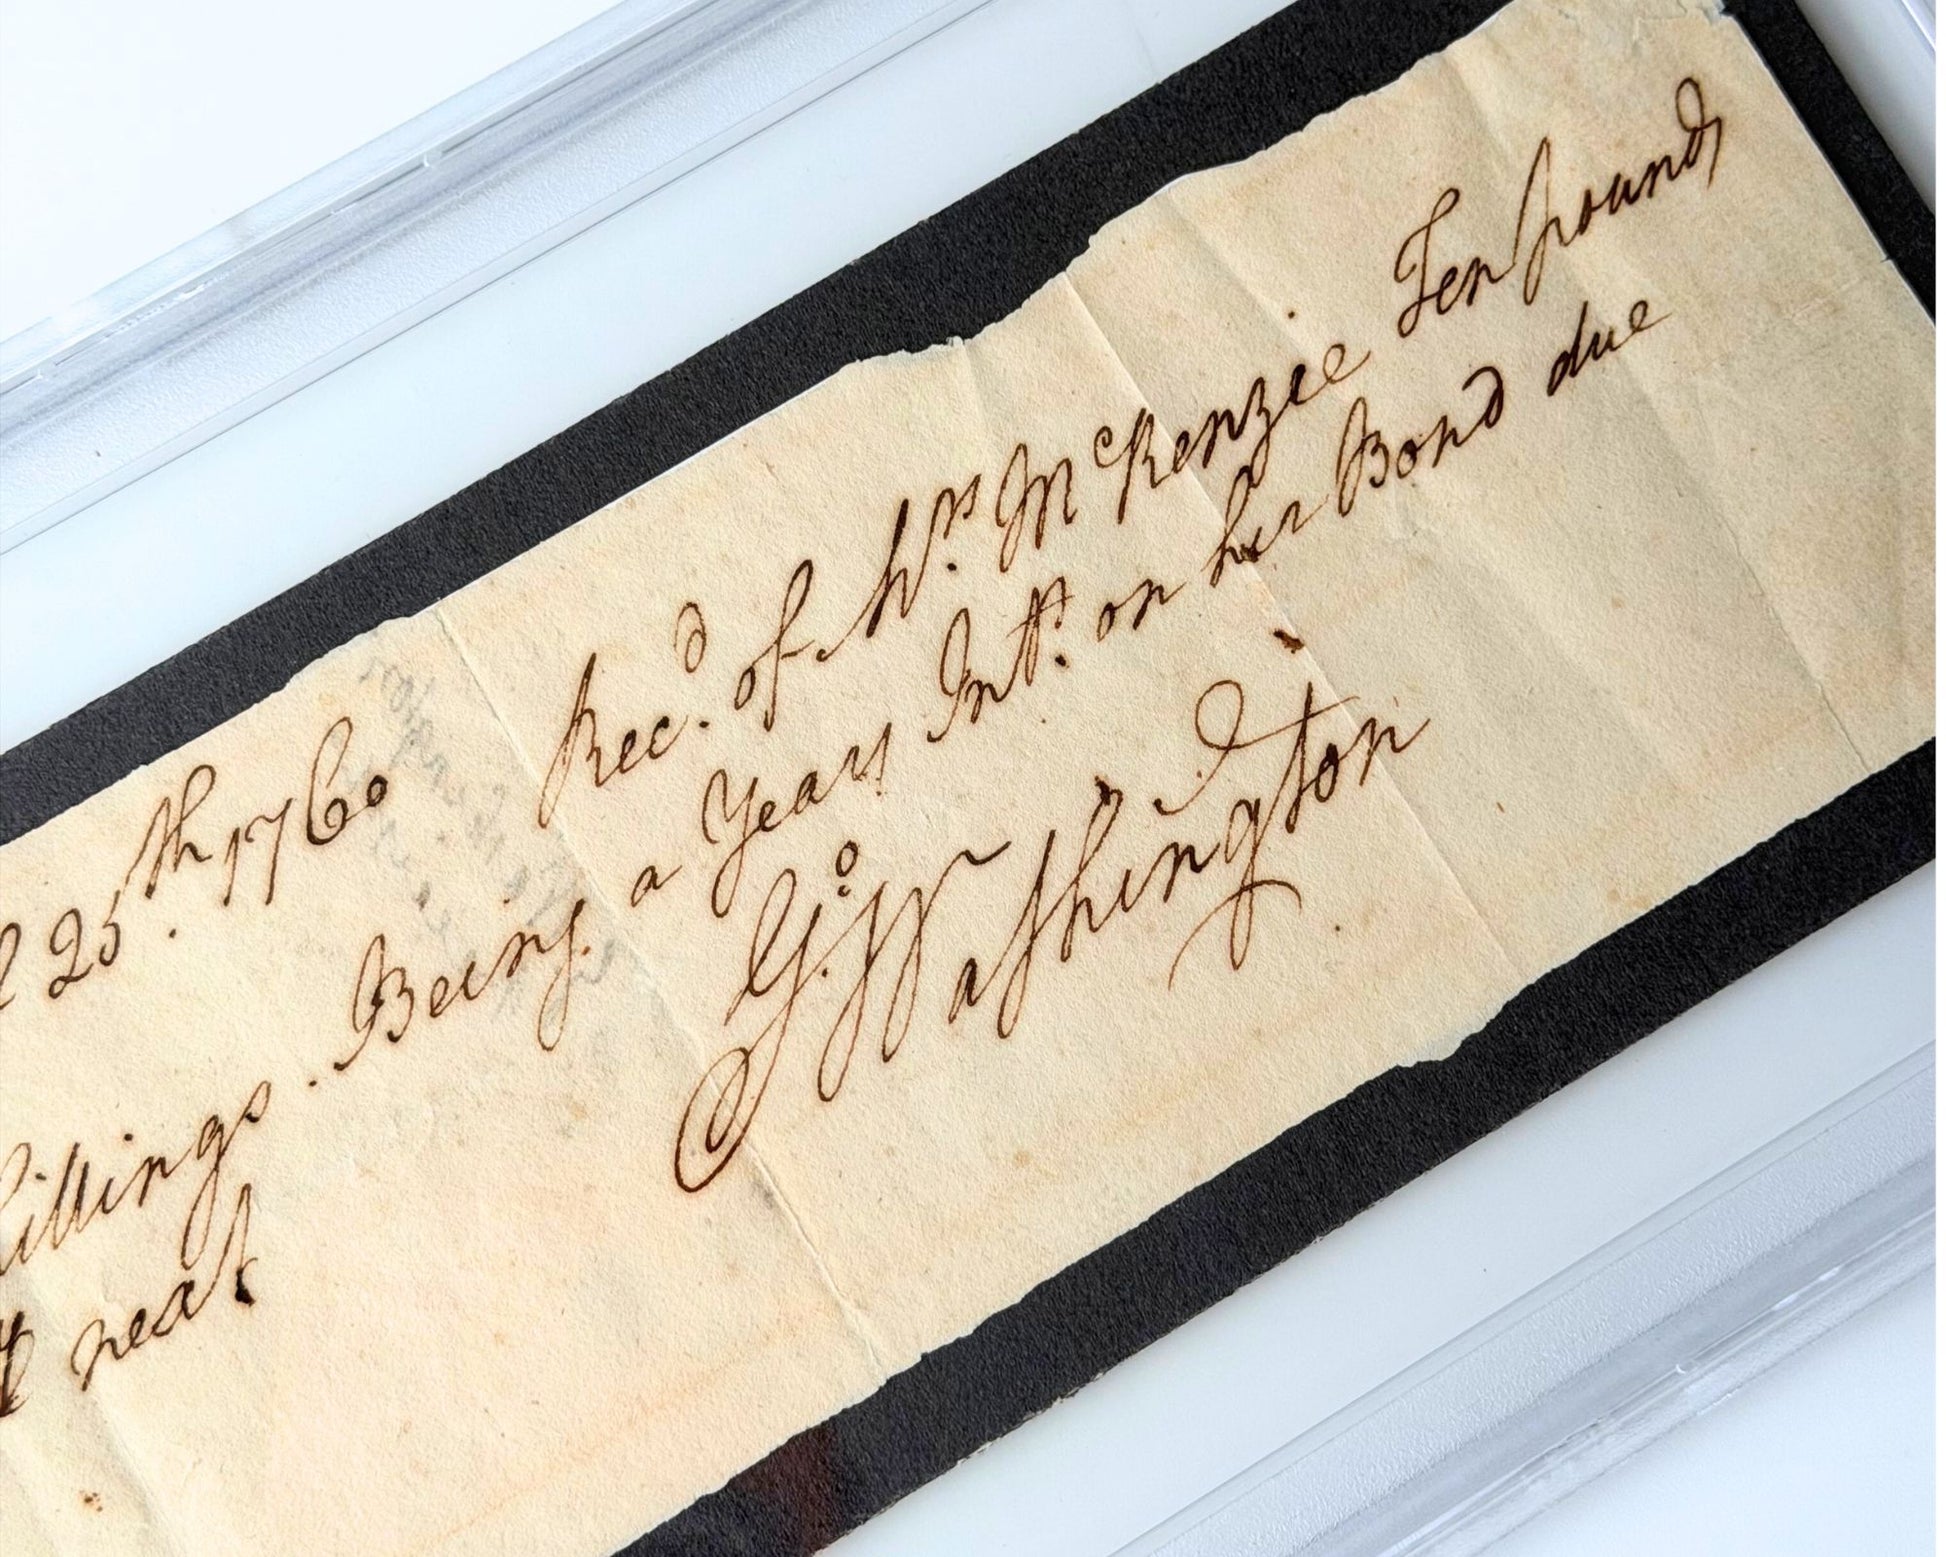 25.th 1760 Rec.d of Mrs. McKenzie Ten pounds
hillings. Being a Years Intt. on her Bond due
neat
Go. Washington